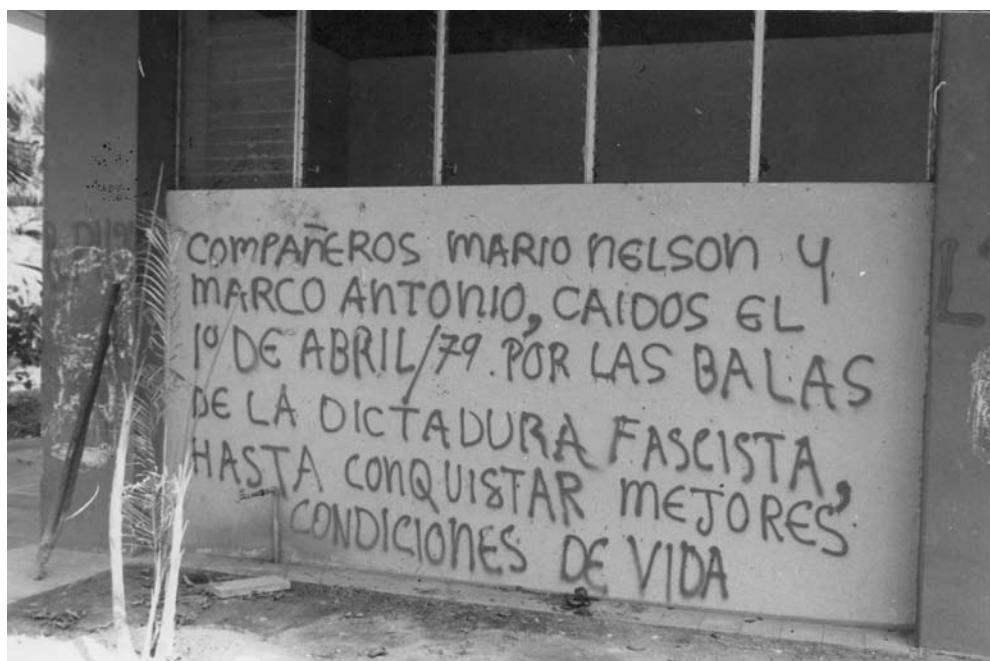 COMPAÑEROS MARIO NELSON Y
MARCO ANTONIO, CAIDOS EL
1º DE ABRIL/79. POR LAS BALAS
DE LA DICTADURA FASCISTA,
HASTA CONQUISTAR MEJORES
CONDICIONES DE VIDA